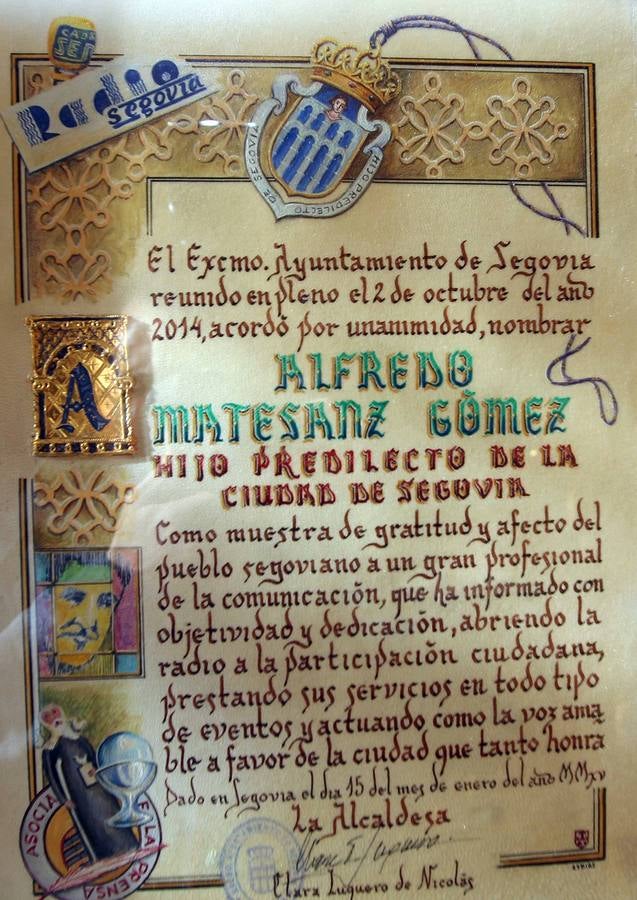 CADENA
SER
Radio
Segovia
HIJO PREDILECTO
DE SEGOVIA
El Excmo. Ayuntamiento de Segovia
reunido en pleno el 2 de octubre del año
2014, acordó por unanimidad, nombrar
A
ALFREDO
MATESANZ GÓMEZ
HIJO PREDILECTO DE LA
CIUDAD DE SEGOVIA
Como muestra de gratitud y afecto del
pueblo segoviano a un gran profesional
de la comunicación, que ha informado con
objetividad y dedicación, abriendo la
radio a la participación ciudadana,
prestando sus servicios en todo tipo
de eventos y actuando como la voz ama
ble a favor de la ciudad que tanto honra
Dado en Segovia el dia 15 del mes de enero del año MMXV
La Alcaldesa
Clara Luquero de Nicolás
ASOCIA
E LA PRENSA